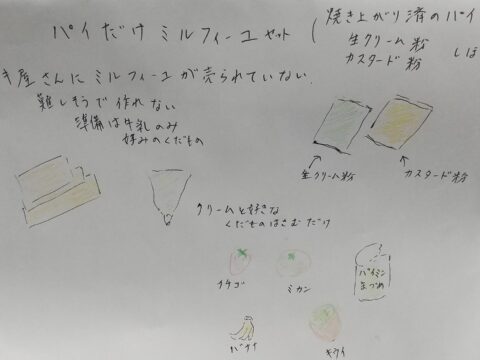 パイだけミルフィーユセット(
焼き上がり済のパイ
生クリーム粉
カスタード粉
しぼ
キ屋さんにミルフィーユが売られていない.
難しそうで作れない
準備は牛乳のみ
好みのくだもの
生クリーム粉
カスタード粉
クリームと好きな
くだものはさむだけ
イチゴ
ミカン
パイミン
まづめ
バナナ
キウイ